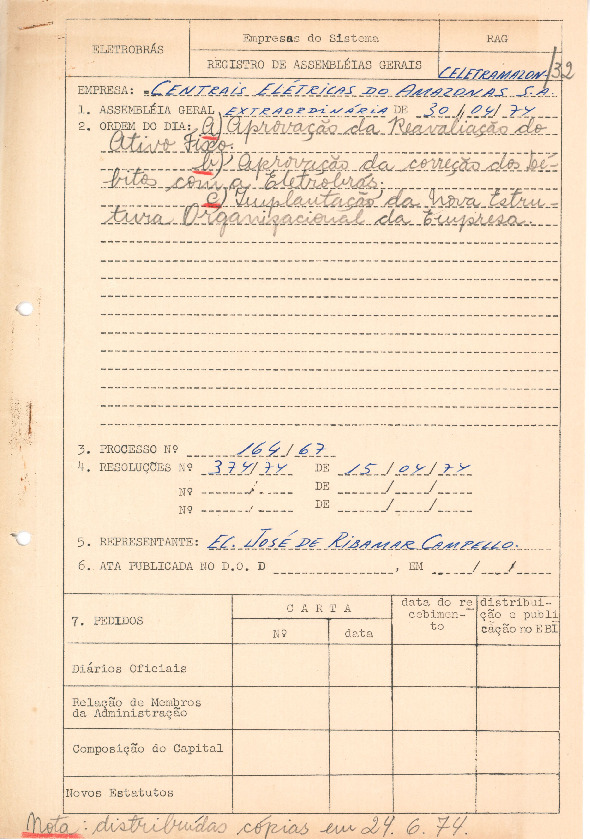 ELETROBRÁS
Empresas do Sistema
RAG
REGISTRO DE ASSEMBLÉIAS GERAIS
CELETRAMAZON/32
EMPRESA: CENTRAIS ELÉTRICAS DO AMAZONAS S.A.
1. ASSEMBLÉIA GERAL EXTRAORDINÁRIA DE 30/04/74
2. ORDEM DO DIA: a) Aprovação da Reavaliação do
Ativo Fixo.
b) Aprovação da correção dos Dé-
bitos com a Eletrobrás;
c) Implantação da Nova Estru-
tura Organizacional da Empresa.
3. PROCESSO Nº 164/67
4. RESOLUÇÕES Nº 374/74 DE 15/04/74
Nº / DE / /
Nº / DE / /
5. REPRESENTANTE: EC. JOSÉ DE RIBAMAR CAMPELLO.
6. ATA PUBLICADA NO D.O. D , EM / /
7. PEDIDOS
CARTA
Nº
data
data do re
cebimen-
to
distribui-
ção e publi
cação no EBI
Diários Oficiais
Relação de Membros
da Administração
Composição do Capital
Novos Estatutos
Nota: distribuídas cópias em 24.6.74.